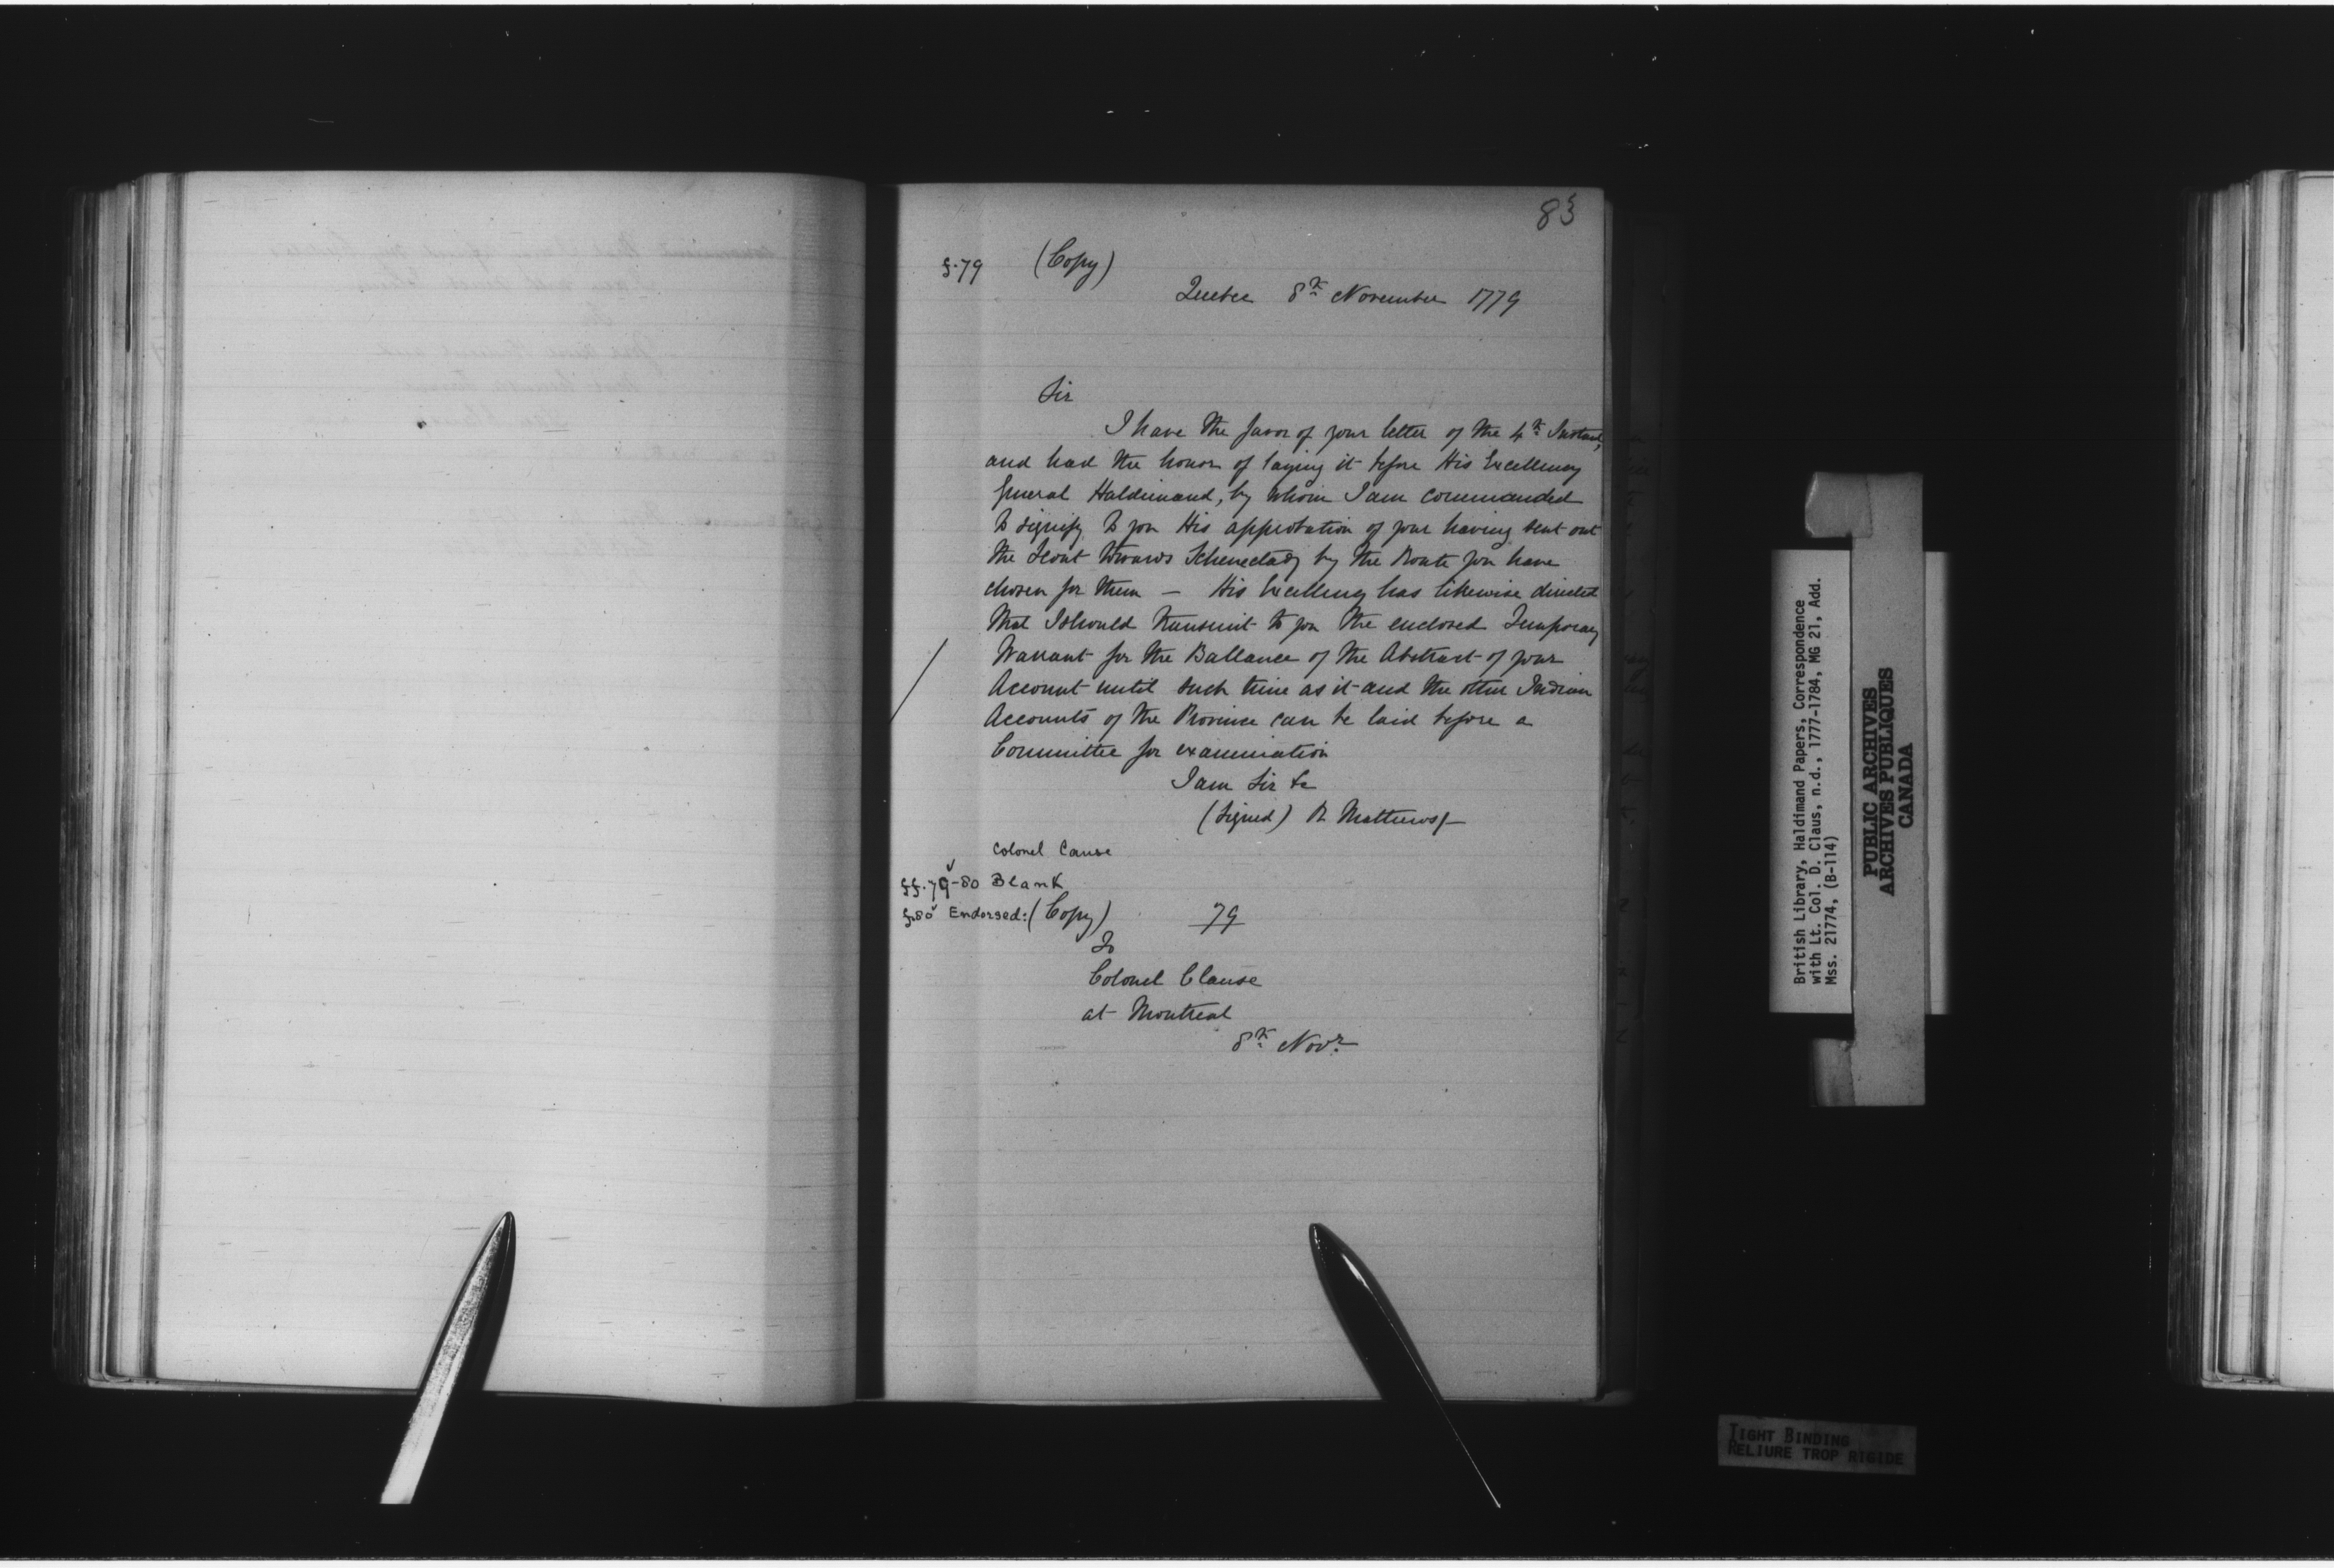 83
f.79 (Copy)
Quebec 8th November 1779
Sir
I have the favor of your letter of the 4th Instant,
and had the honor of laying it before His Excellency
General Haldimand, by whom I am commanded
to signify to you His approbation of your having sent out
the Scout towards Schenectady by the Route you have
chosen for them — His Excellency has likewise directed
that I should transmit to you the enclosed Temporary
Warrant for the Ballance of the Abstract of your
Account until such time as it and the other Indian
Accounts of the Province can be laid before a
Committee for examination
I am Sir &c
(Signed) R Mathews/-
Colonel Cause
ff.79v-80 Blank
f.80v Endorsed: (Copy) 79
To
Colonel Clause
at Montreal
8th Novr
British Library, Haldimand Papers, Correspondence
with Lt. Col. D. Claus, n.d., 1777-1784, MG 21, Add.
Mss. 21774, (B-114)
PUBLIC ARCHIVES
ARCHIVES PUBLIQUES
CANADA
TIGHT BINDING
RELIURE TROP RIGIDE